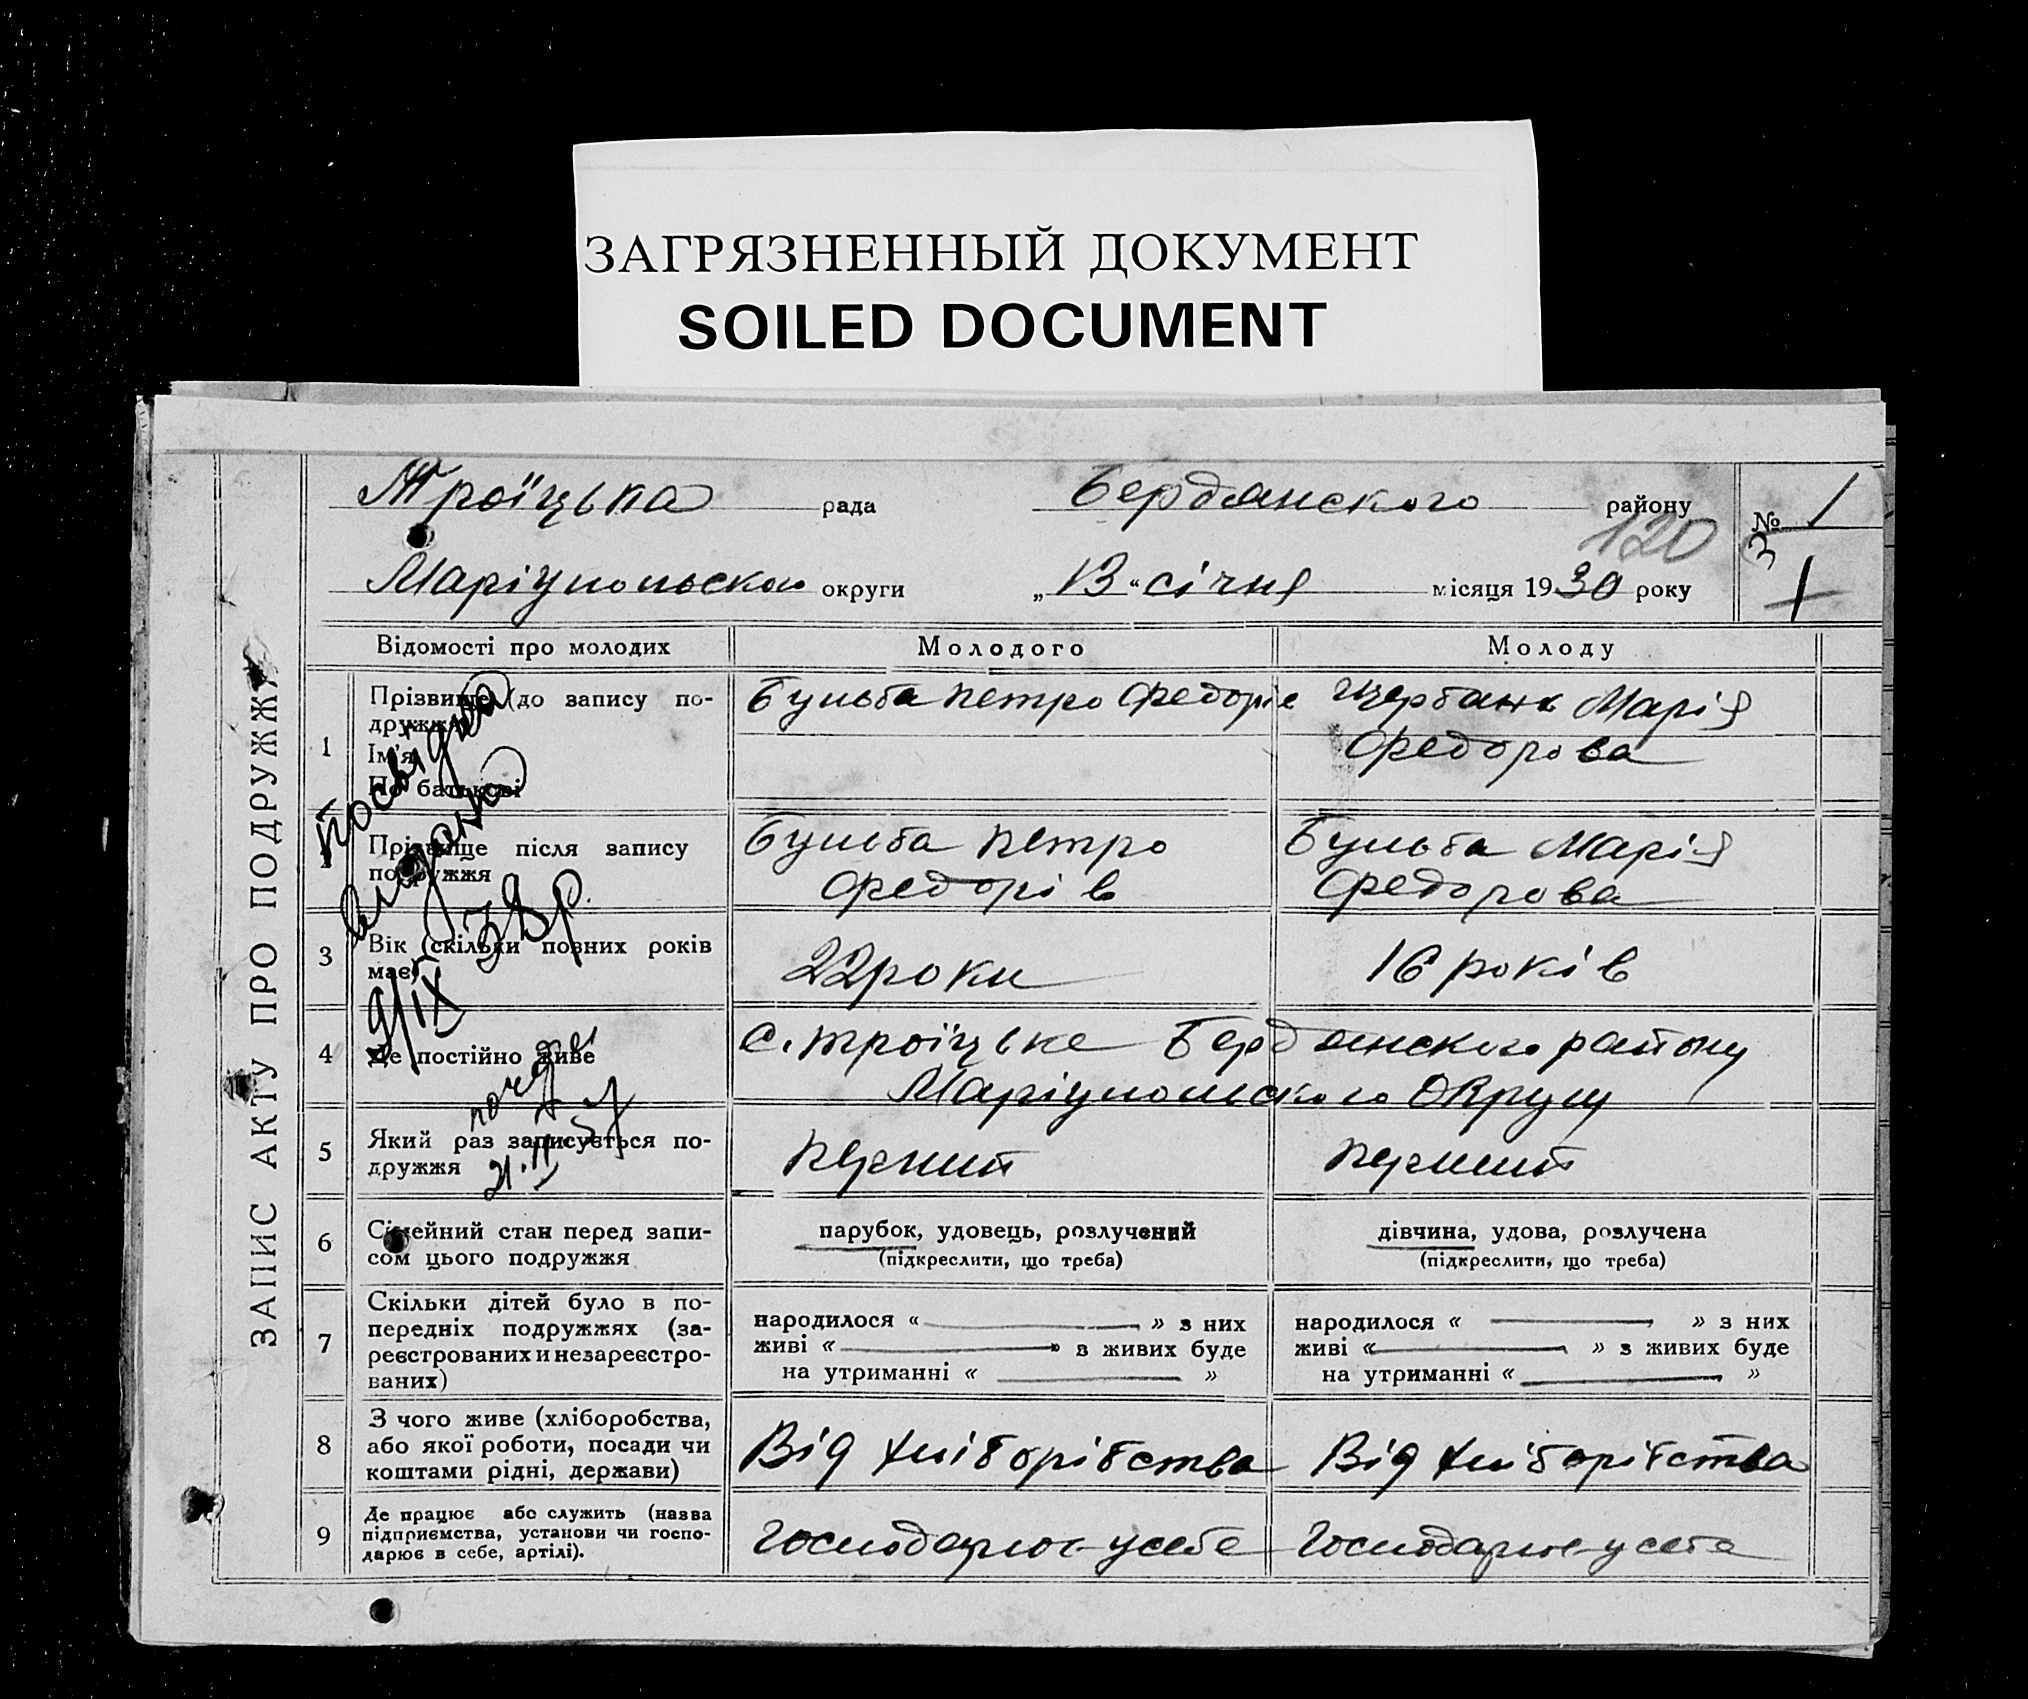 ЗАГРЯЗНЕННЫЙ ДОКУМЕНТ
SOILED DOCUMENT
Троїцька рада Бердянского району № 1
120
Маріупольскої округи „13“ січня місяця 1930 року
ЗАПИС АКТУ ПРО ПОДРУЖЖЯ
Відомості про молодих Молодого Молоду
1 Прізвище (до запису подружжя) Бульба Петро Федорів Щербань Марія
Ім'я Федорова
По батькові
2 Прізвище після запису Бульба Петро Бульба Марія
подружжя Федорів Федорова
3 Вік (скільки повних років має) 22 роки 16 років
4 Де постійно живе с. Троїцьке Бердянского району
Маріупольского Округу
5 Який раз записується подружжя перший перший
6 Сімейний стан перед запи- парубок, удовець, розлучений дівчина, удова, розлучена
сом цього подружжя (підкреслити, що треба) (підкреслити, що треба)
7 Скільки дітей було в по-
передніх подружжях (за- народилося « » з них народилося « » з них
реєстрованих и незареєстро- живі « » з живих буде живі « » з живих буде
ваних) на утриманні « » на утриманні « »
8 З чого живе (хліборобства,
або якої роботи, посади чи Від хліборібства Від хліборібства
коштами рідні, держави)
9 Де працює або служить (назва
підприємства, установи чи госпо- Господарює у себе Господарює у себе
дарює в себе, артілі).
Посвідка
видана
9/IX 38 р.